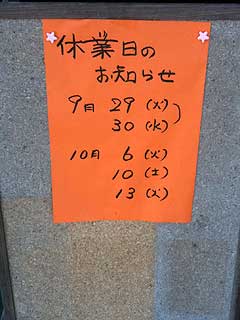 休業日の
お知らせ
9月 29 (火)
30 (水)
10月 6 (火)
10 (土)
13 (火)